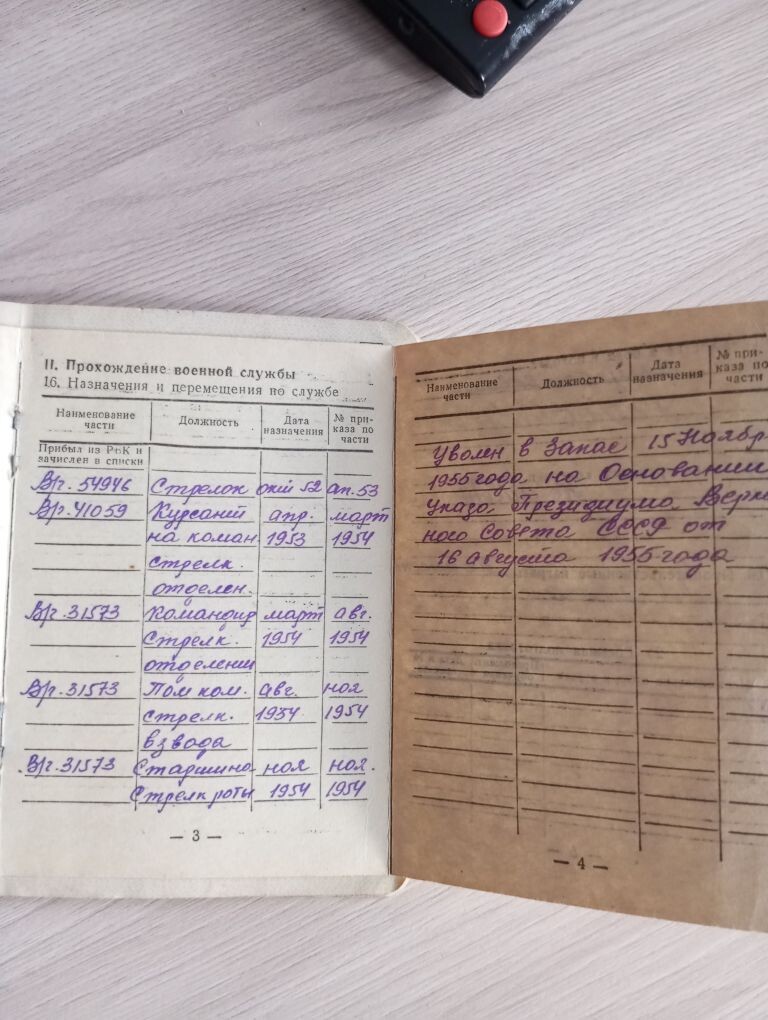 II. Прохождение военной службы
16. Назначения и перемещения по службе
Наименование части Должность Дата назначения № приказа по части
Прибыл из РвК и
зачислен в списки
В/ч. 54946 Стрелок окт 52 ап. 53
В/ч. 41059 Курсант апр. март
на коман 1953 1954
стрелк.
отделен.
В/ч. 31573 Командир март авг.
стрелк. 1954 1954
отделении
В/ч. 31573 Пом ком. авг. ноя
стрелк. 1954 1954
взвода
В/ч. 31573 Старшина ноя ноя.
Стрелк роты 1954 1954
— 3 —
Наименование части Должность Дата назначения № при-каза по части
Уволен в Запас 15 Ноябр
1955 года на Основании
Указа Президиума Верх
ного Совета СССР от
16 августа 1955 года
— 4 —